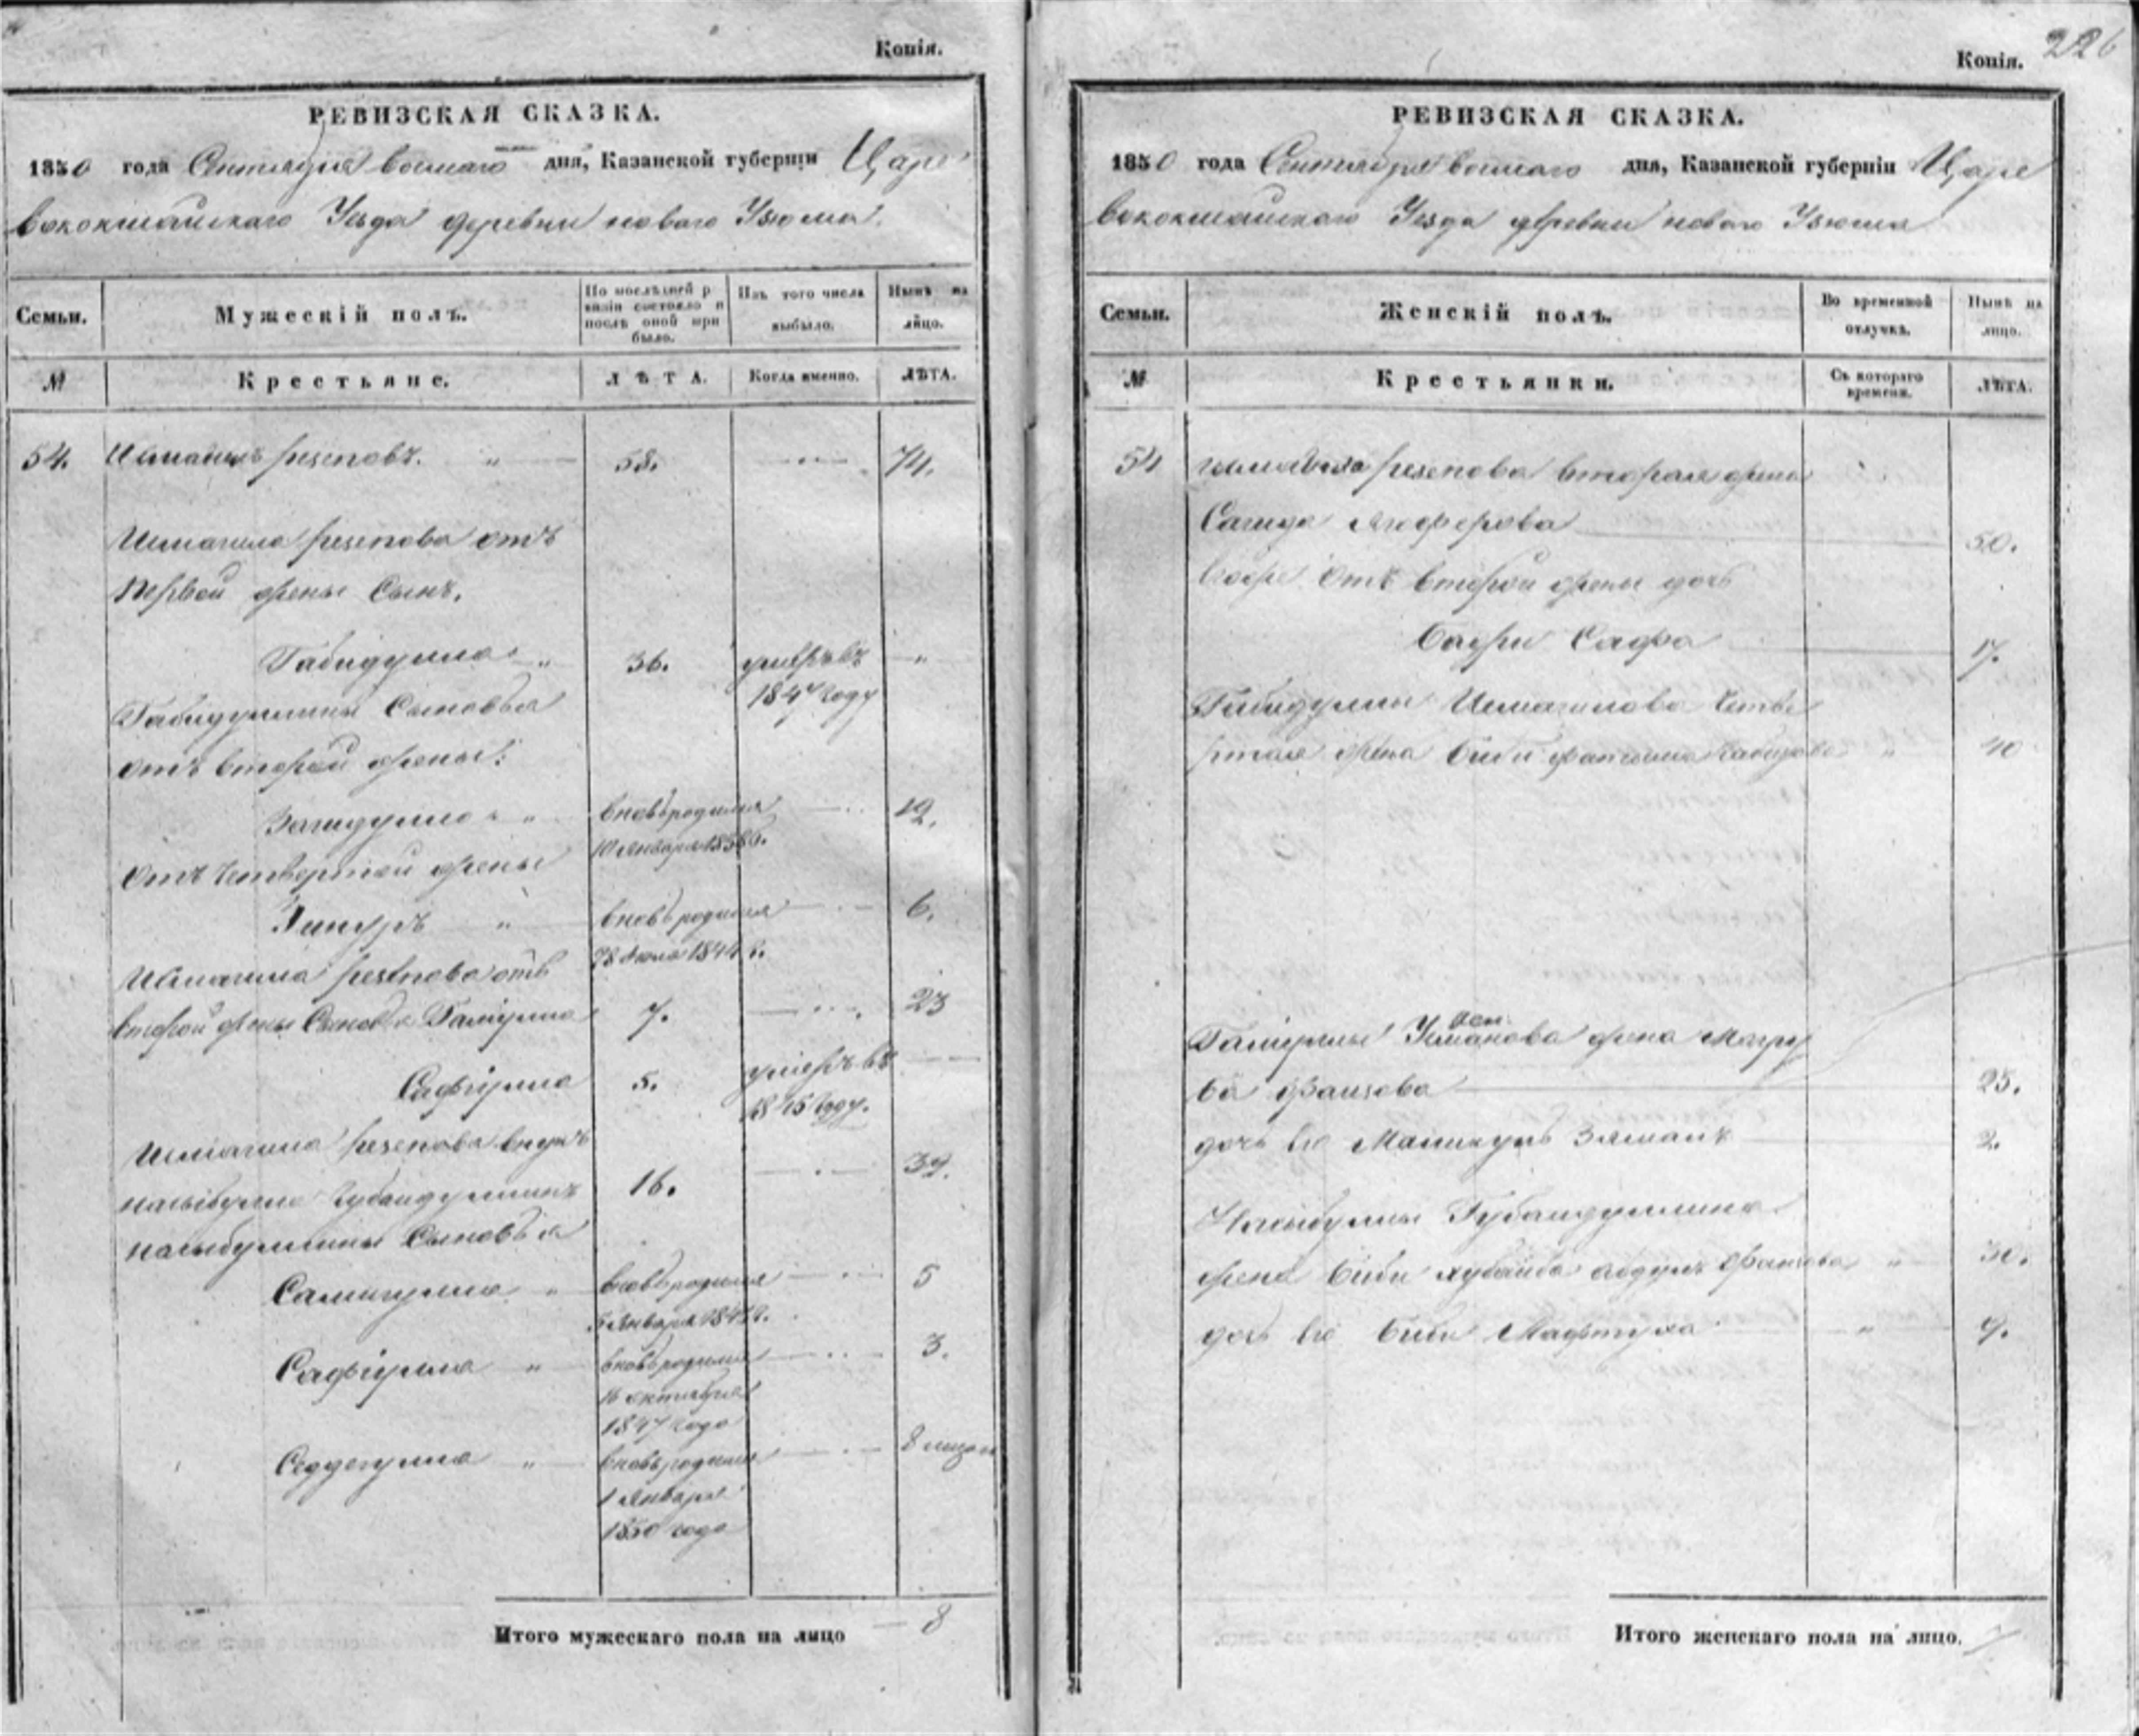 Копія.
РЕВИЗСКАЯ СКАЗКА.
1850 года Сентября восмаго дня, Казанской губерніи Царе
вококшайскаго Уезда деревни новаго Узюма.
Семьи.
Мужескій полъ.
По послѣдней р
визіи состояло и
послѣ оной при
было.
Изъ того числа
выбыло.
Нынѣ на
лицо.
№
Крестьяне.
ЛѢТА.
Когда именно.
ЛѢТА.
54. Исмагилъ резеповъ. 58. 74.
Исмагила резепова отъ
первой жены Сынъ.
Габидулла 36. умеръ въ
1847 году
Габидуллины Сыновья
отъ второй жены:
Загидулла вновьродился 12.
10 января 1838 г.
отъ четвертой жены
вновьродился 6.
28 1844 г.
Исмагила резепова отъ
второй жены Сыновья Галиулла 7. 23
Сафіулла 5. умеръ въ
1845 году.
Исмагила резепова внукъ
насыбулла Губайдуллинъ 16. 32.
насыбуллины Сыновья
Салихулла вновьродился 5
5 января 184
Сафіулла вновьродился 3.
16 октября
1847 года
вновьродился 8 месяц
1 января
1850 года
Итого мужескаго пола на лицо 8
226
Копія.
РЕВИЗСКАЯ СКАЗКА.
1850 года Сентября восмаго дня, Казанской губерніи Царе
вококшайскаго Уезда деревни новаго Узюма
Семьи.
Женскій полъ.
Во временной
отлучкѣ.
Нынѣ на
лицо.
№
Крестьянки.
Съ котораго
времени.
ЛѢТА.
54 исмагила резепова вторая жена
Сагида 50.
отъ второй жены дочь
Бадри Сафа 17.
Габидуллы Исмагилова четве
ртая жена биби 40
Галиуллы жена Магру
ба Фаизова 25.
дочь его Зямалъ 2.
Насыбуллы Губайдуллина
жена биби хубайба абдулъ 30.
дочь его биби Мафтуха 9.
Итого женскаго пола на лицо.